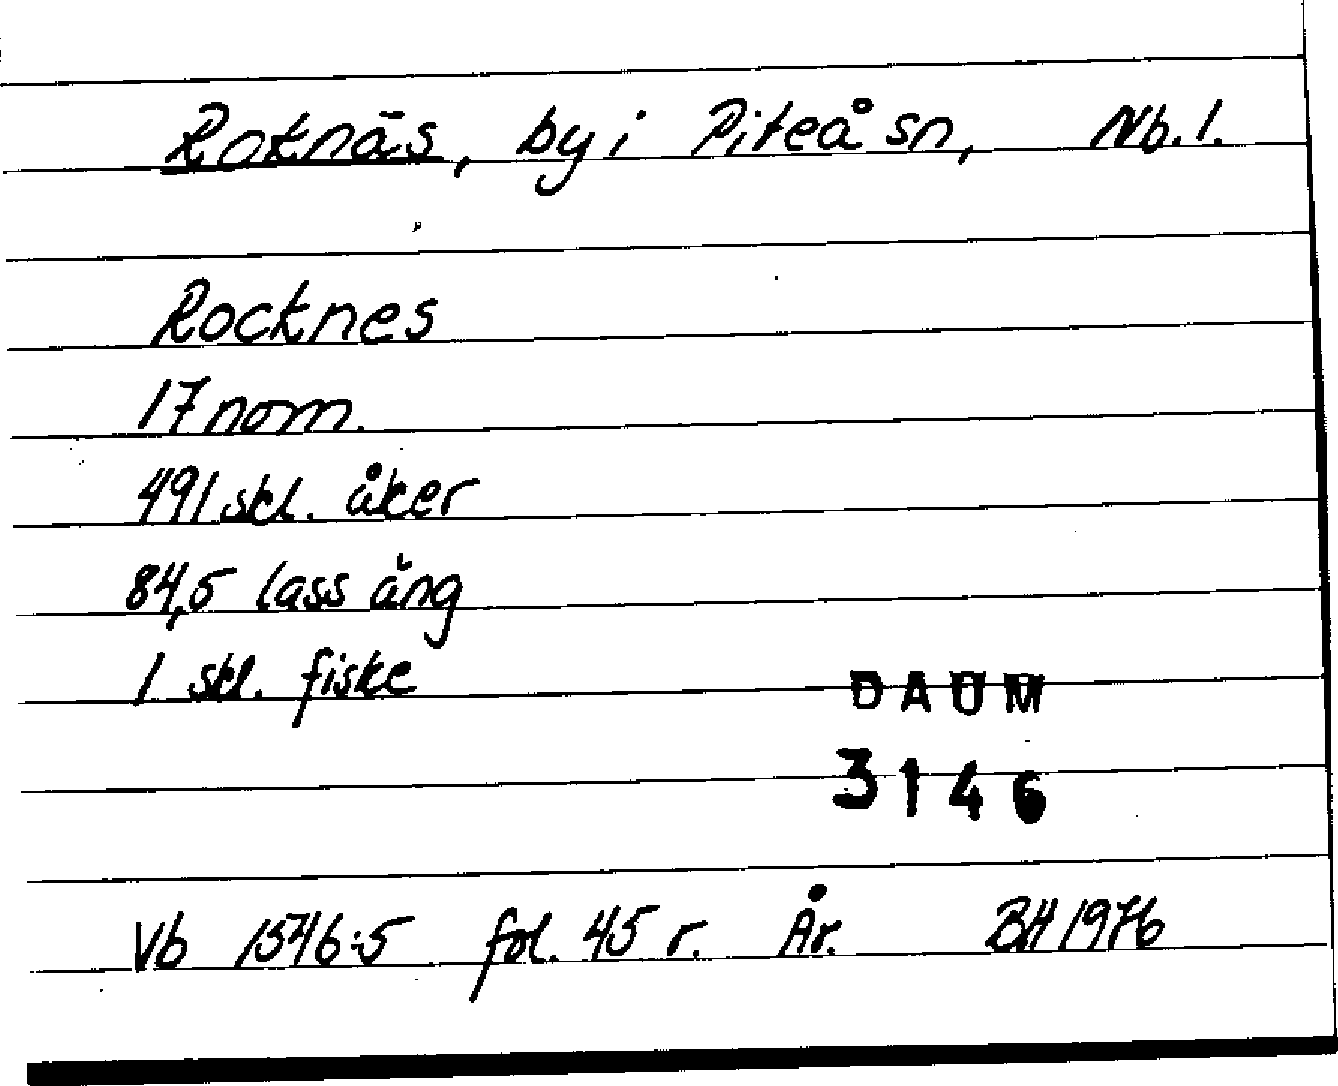 Roknäs, by i Piteå sn, Nb. l.
Rocknes
17 nom.
491 skl. åker
84,5 lass äng
1 skl. fiske
DAUM
3146
Vb 1546:5 fol. 45 r. År. BH 1976